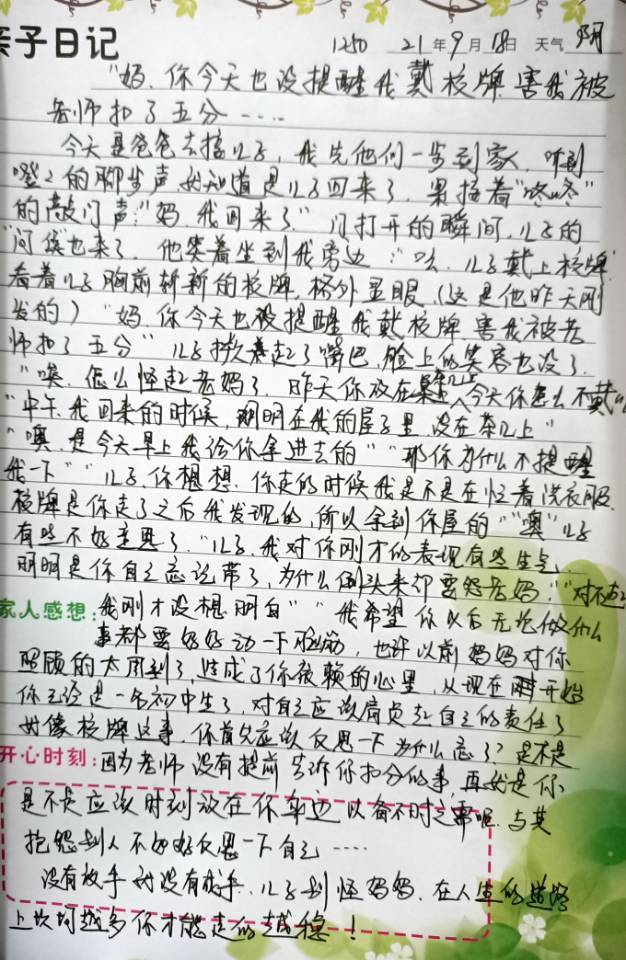 亲子日记 1250 21年9月18日 天气 阴
"妈，你今天也没提醒我戴校牌害我被
老师扣了五分……
今天是爸爸去接儿子，我先他们一步到家，听到
噔噔的脚步声我知道是儿子回来了，果接着"咚咚"
的敲门声"妈，我回来了"门打开的瞬间，儿子的
"问候"也来了，他笑着坐到我旁边："哇，儿子戴上校牌"
看着儿子胸前崭新的校牌，格外显眼（这是他昨天刚
发的）"妈，你今天也没提醒我戴校牌害我被老
师扣了五分"儿子撅着起了嘴巴，脸上的笑容也没了，
"噢，怎么怪起老妈了，昨天你放在茶几上今天你怎么不戴"
"中午，我回来的时候，明明在我的屋子里，没在茶几上"
"噢，是今天早上我给你拿进去的""那你为什么不提醒
我一下""儿子，你想想，你走的时候我是不是在忙着洗衣服，
校牌是你走了之后我发现的，所以拿到你屋的""噢"儿子
有些不好意思了，"儿子，我对你刚才的表现有些生气，
明明是你自己忘记带了，为什么倒头来却要怨老妈""对不起
家人感想：我刚才没想明白""我希望你以后无论做什么
事都要好好动一下脑筋，也许以前妈妈对你
照顾的太周到了，造成了你依赖的心里，从现在开始
你已经是一名初中生了，对自己应该肩负起自己的责任了
好像校牌这事，你首先应该反思一下为什么忘了？是不是
开心时刻：因为老师没有提前告诉你扣分的事，再就是你
是不是应该时刻放在你车边以备不时之需呢，与其
抱怨别人不如好好反思一下自己……
没有放手就没有成手，儿子别怪妈妈，在人生的道路
上坎坷越多你才能走的越稳！